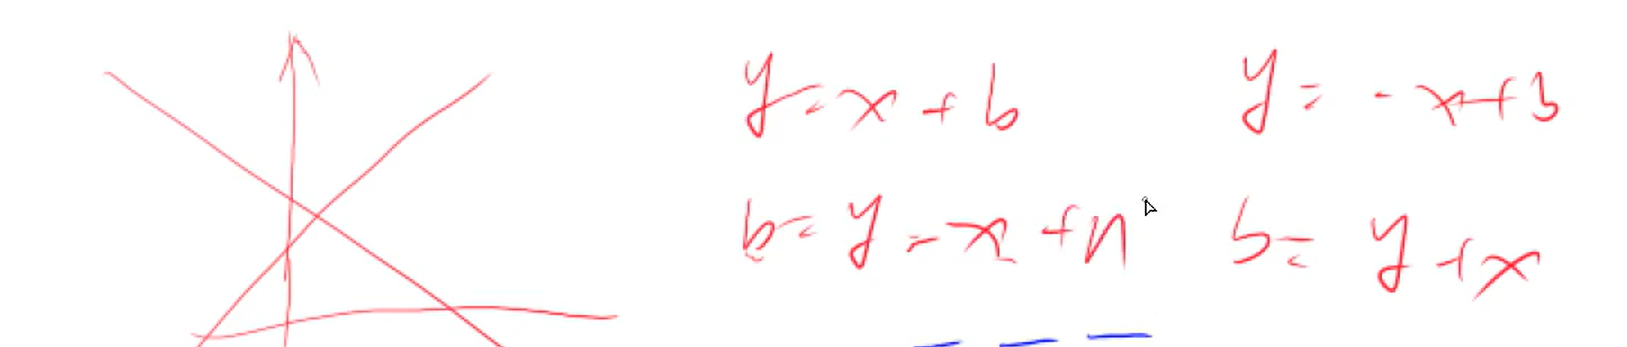 y=x+b y=-x+b
b=y-x+n b=y+x